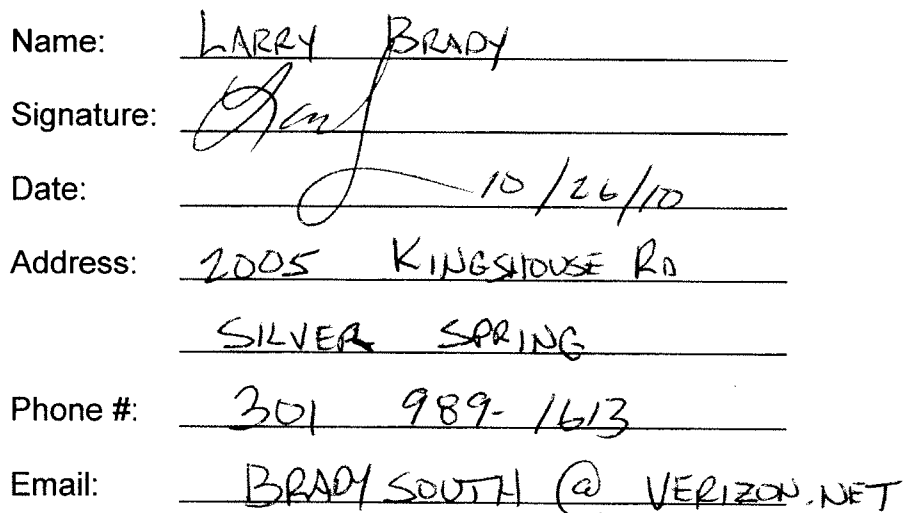 Name: LARRY BRADY
Signature:
Date: 10/26/10
Address: 2005 KINGSHOUSE RD
SILVER SPRING
Phone #: 301 989-1613
Email: BRADYSOUTH@VERIZON.NET